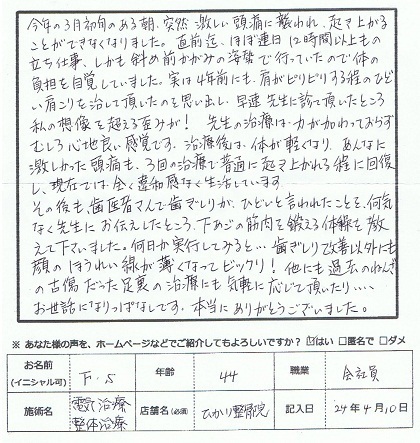 今年の3月初旬のある朝、突然激しい頭痛に襲われ、起き上がる
ことができなくなりました。直前迄、ほぼ連日12時間以上もの
立ち仕事、しかも斜め前かがみの姿勢で行っていたので体の
負担を自覚していました。実は4年前にも、肩がビリビリする程のひど
い肩こりを治して頂いたのを思い出し、早速先生に診て頂いたところ
私の想像を超える歪みが! 先生の治療は力が加わっておらず
むしろ心地良い感覚です。治療後は、体が軽くなり、あんなに
激しかった頭痛も、3回の治療で普通に起き上がれる程に回復
し、現在では全く違和感なく生活しています。
その後も、歯医者さんで歯ぎしりが、ひどいと言われたことを、何気
なく先生にお伝えしたところ、下あごの筋肉を鍛える体操を教
えて下さいました。何日か実行してみると…歯ぎしり改善以外にも
顔のほうれい線が薄くなってビックリ!他にも過去のねんざ
の古傷だった足裏の治療にも気軽に応じて頂いたり....
お世話になりっぱなしです。本当にありがとうございました。
※ あなた様の声を、ホームページなどでご紹介してもよろしいですか? ☑はい □匿名で □ダメ
お名前 (イニシャル可) F.S 年齢 44 職業 会社員
施術名 電気治療 整体治療 店舗名(必須) ひかり整骨院 記入日 24年4月10日